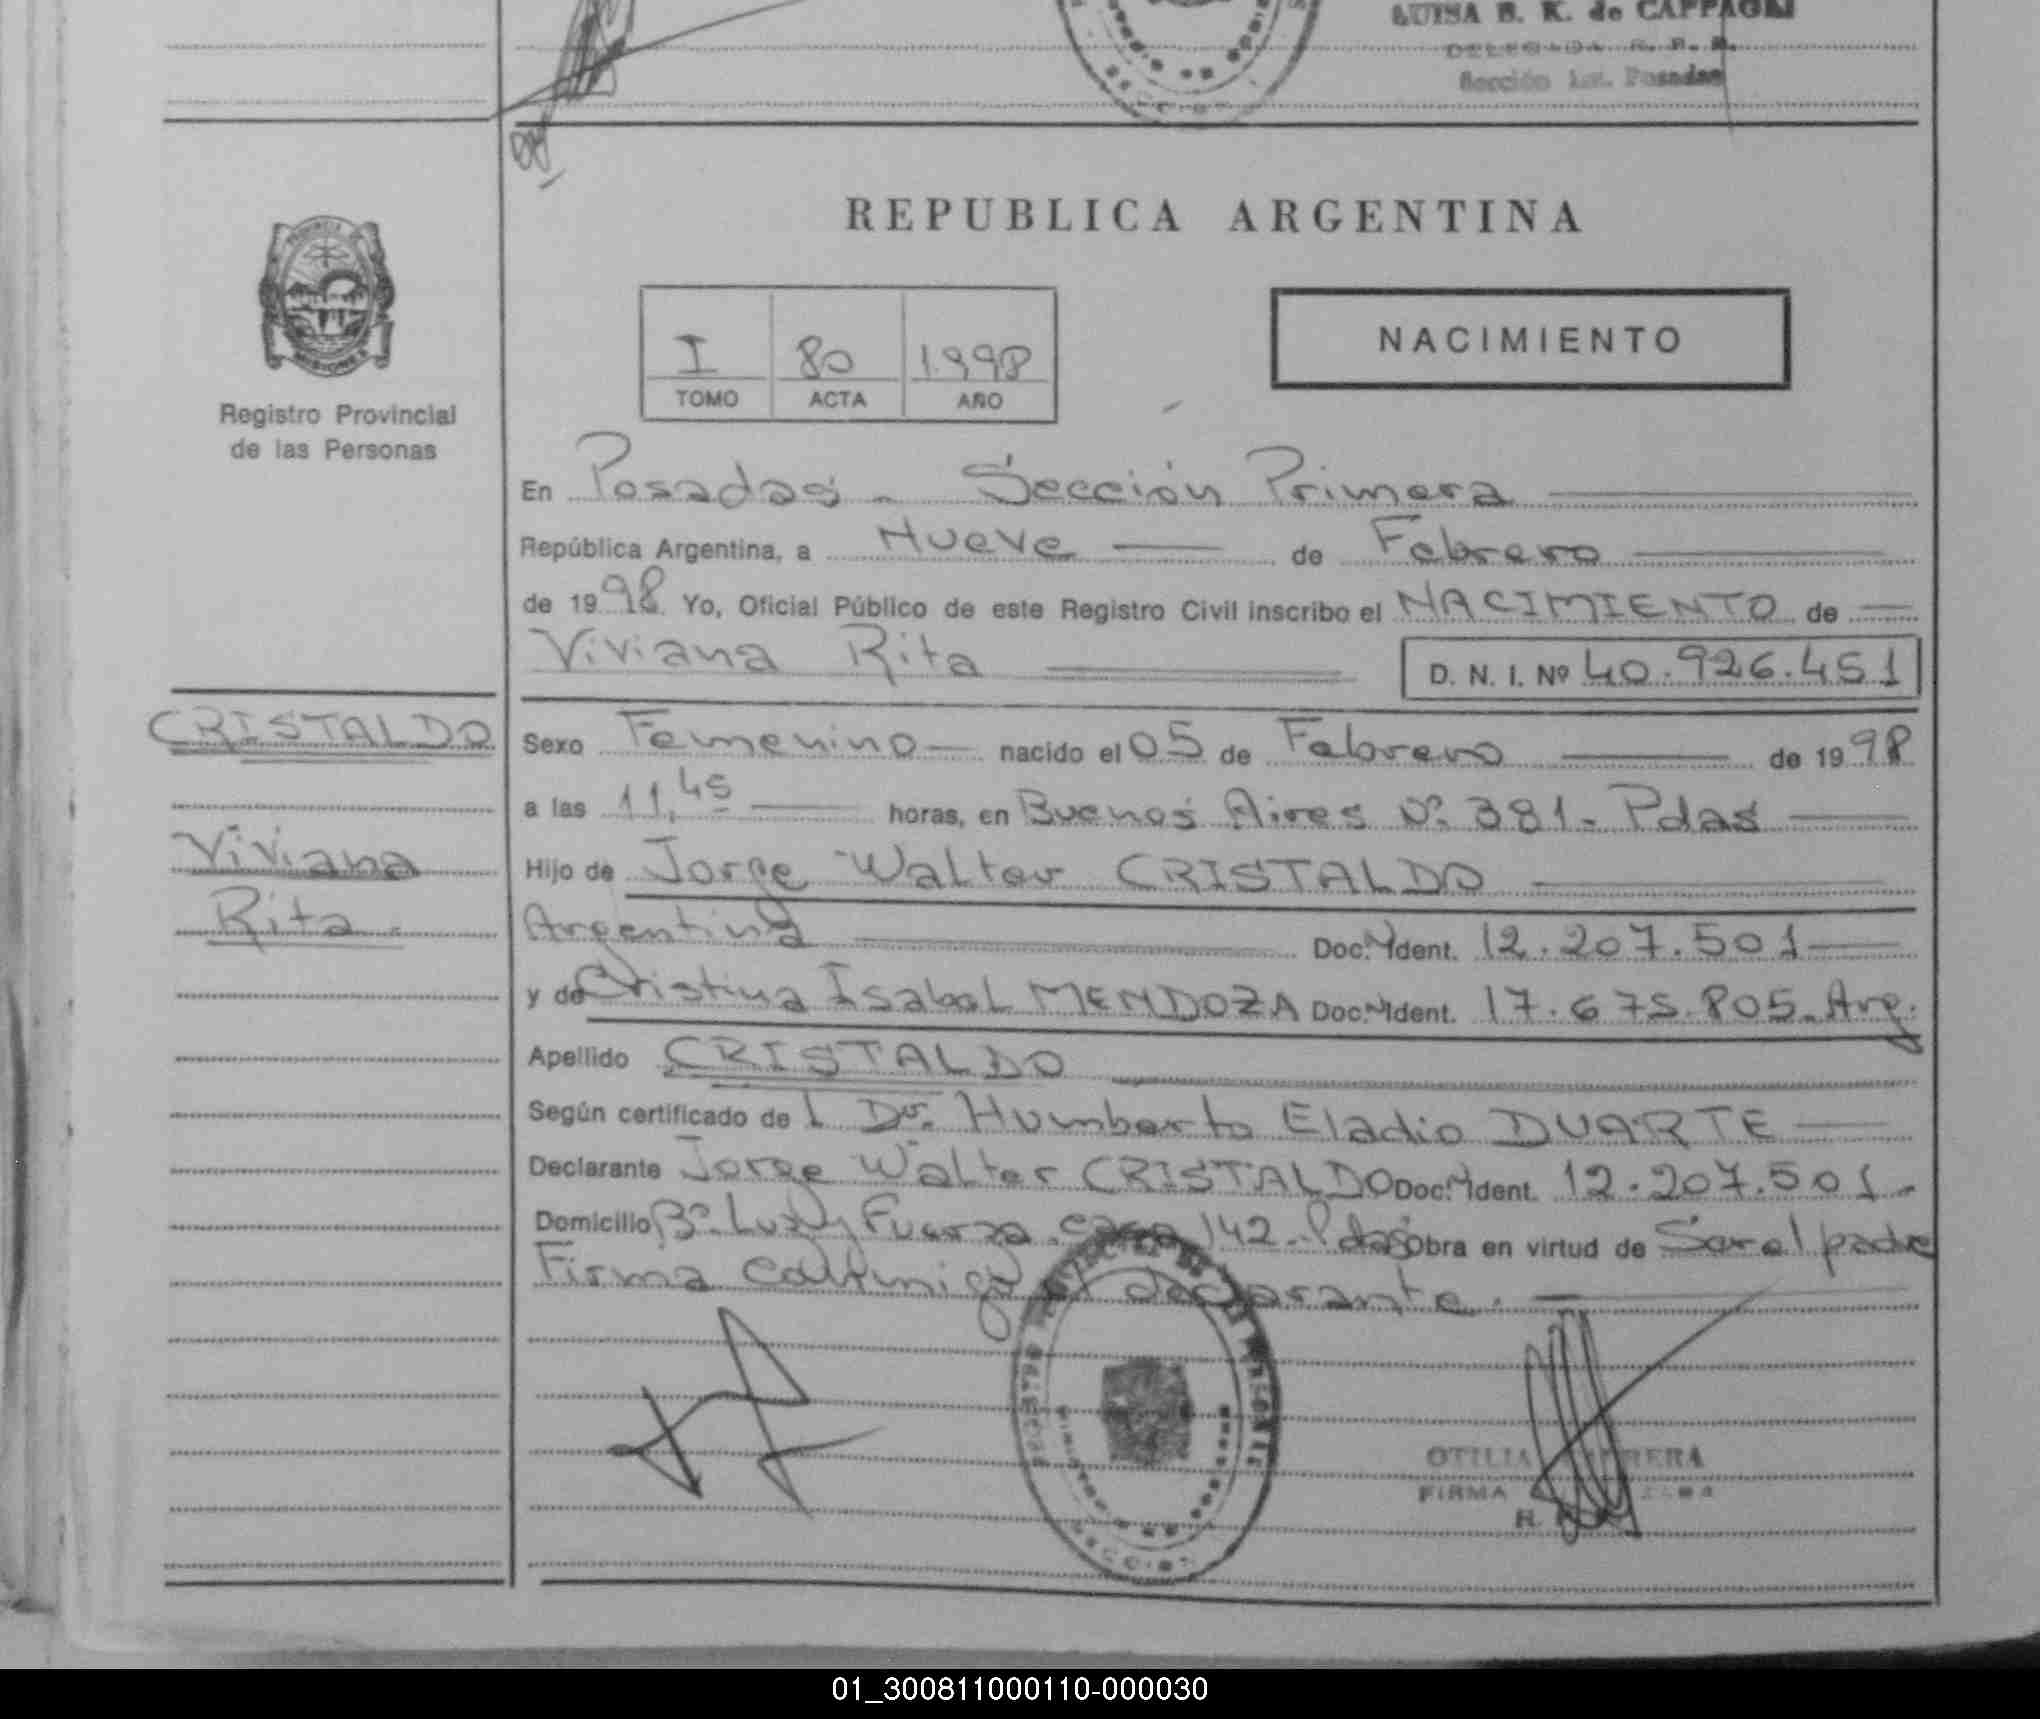 LUISA B. K. de CAPPAGLI
DELEGADA R. P. P.
Sección 1ra. Posadas
REPUBLICA ARGENTINA
I 80 1.998
TOMO ACTA AÑO
NACIMIENTO
Registro Provincial
de las Personas
En Posadas - Sección Primera
República Argentina, a Nueve de Febrero
de 1998 Yo, Oficial Público de este Registro Civil inscribo el NACIMIENTO de
Viviana Rita D. N. I. Nº 40.926.451
CRISTALDO
Viviana
Rita.
Sexo Femenino nacido el 05 de Febrero de 1998
a las 11,45 horas, en Buenos Aires Nº 381- Pdas
Hijo de Jorge Walter CRISTALDO
Argentina Doc. Ident. 12.207.501
y de Cristina Isabel MENDOZA Doc. Ident. 17.675.805- Arg.
Apellido CRISTALDO
Según certificado de l Dr. Humberto Eladio DUARTE
Declarante Jorge Walter CRISTALDO Doc. Ident. 12.207.501-
Domicilio Bº Luz y Fuerza casa 142- Pdas Obra en virtud de Ser el padre
Firma conmigo el declarante.
OTILIA
FIRMA
SECCION
01_300811000110-000030